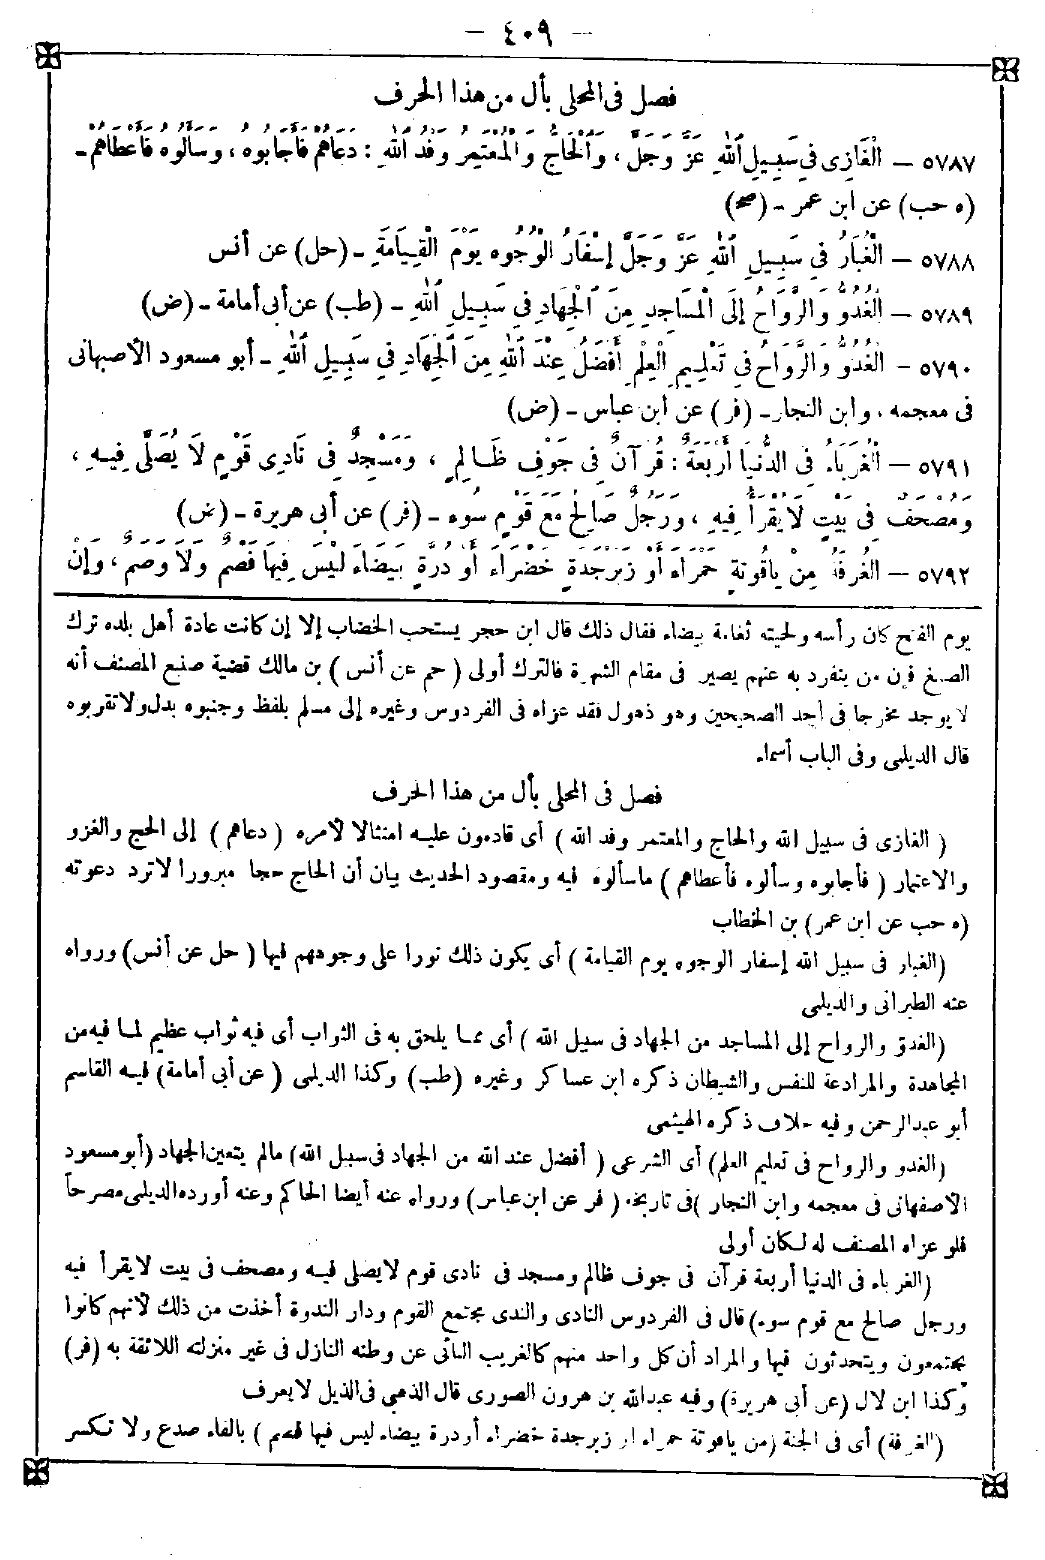 - ٤٠٩ -
فصل فى المحلى بأل من هذا الحرف
٥٧٨٧ – الْغَازِى فِى سَبِيلِ اللهِ عَزَّ وَجَلَّ ، وَالْحَاجُّ وَالْمُعْتَمِرُ وَفْدُ اللهِ : دَعَاهُمْ فَأَجَابُوهُ ، وَسَأَلُوهُ فَأَعْطَاهُمْ –
(ه حب) عن ابن عمر – (صح)
٥٧٨٨ – الْغُبَارُ فِى سَبِيلِ اللهِ عَزَّ وَجَلَّ إِسْفَارُ الْوُجُوهِ يَوْمَ الْقِيَامَةِ – (حل) عن أنس
٥٧٨٩ – الْغُدُوُّ وَالرَّوَاحُ إِلَى الْمَسَاجِدِ مِنَ الْجِهَادِ فِى سَبِيلِ اللهِ – (طب) عن أبى أمامة – (ض)
٥٧٩٠ – الْغُدُوُّ وَالرَّوَاحُ فِى تَعْلِيمِ الْعِلْمِ أَفْضَلُ عِنْدَ اللهِ مِنَ الْجِهَادِ فِى سَبِيلِ اللهِ – أبو مسعود الأصبهانى
فى معجمه ، وابن النجار – (فر) عن ابن عباس – (ض)
٥٧٩١ – الْغُرَبَاءُ فِى الدُّنْيَا أَرْبَعَةٌ : قُرْآنٌ فِى جَوْفِ ظَالِمٍ ، وَمَسْجِدٌ فِى نَادِى قَوْمٍ لَا يُصَلَّى فِيهِ ،
وَمُصْحَفٌ فِى بَيْتٍ لَا يُقْرَأُ فِيهِ ، وَرَجُلٌ صَالِحٌ مَعَ قَوْمٍ سُوءٍ – (فر) عن أبى هريرة – (ض)
٥٧٩٢ – الْغُرْفَةُ مِنْ يَاقُوتَةٍ حَمْرَاءَ أَوْ زَبَرْجَدَةٍ خَضْرَاءَ أَوْ دُرَّةٍ بَيْضَاءَ لَيْسَ فِيهَا فَصْمٌ وَلَا وَصْمٌ ، وَإِنَّ
يوم الفتح كان رأسه ولحيته ثغامة بيضاء فقال ذلك قال ابن حجر يستحب الخضاب إلا إن كانت عادة أهل بلده ترك
الصبغ فإن من ينفرد به عنهم يصير فى مقام الشهرة فالترك أولى ( حم عن أنس ) بن مالك قضية صنع المصنف أنه
لا يوجد مخرجا فى أحد الصحيحين وهو ذهول فقد عزاه فى الفردوس وغيره إلى مسلم بلفظ وجنبوه بدل ولا تقربوه
قال الديلمى وفى الباب أسماء
فصل فى المحلى بأل من هذا الحرف
( الغازى فى سبيل الله والحاج والمعتمر وفد الله ) أى قادمون عليه امتثالا لأمره ( دعاهم ) إلى الحج والغزو
والاعتمار ( فأجابوه وسألوه فأعطاهم ) ماسألوه فيه ومقصود الحديث بيان أن الحاج حجا مبرورا لا ترد دعوته
(ه حب عن ابن عمر) بن الخطاب
(الغبار فى سبيل الله إسفار الوجوه يوم القيامة ) أى يكون ذلك نورا على وجوههم فيها ( حل عن أنس) ورواه
عنه الطبرانى والديلمى
(الغدو والرواح إلى المساجد من الجهاد فى سبيل الله ) أى مما يلحق به فى الثواب أى فيه ثواب عظيم لما فيه من
المجاهدة والمرادعة للنفس والشيطان ذكره ابن عساكر وغيره (طب) وكذا الديلمى ( عن أبى أمامة) فيه القاسم
أبو عبدالرحمن وفيه خلاف ذكره الهيثمى
(الغدو والرواح فى تعليم العلم) أى الشرعى ( أفضل عند الله من الجهاد فى سبيل الله) مالم يتعين الجهاد (أبو مسعود
الأصفهانى فى معجمه وابن النجار )فى تاريخه ( فر عن ابن عباس) ورواه عنه أيضا الحاكم وعنه أورده الديلمى مصرحاً
فلو عزاه المصنف له لكان أولى
(الغرباء فى الدنيا أربعة قرآن فى جوف ظالم ومسجد فى نادى قوم لا يصلى فيه ومصحف فى بيت لا يقرأ فيه
ورجل صالح مع قوم سوء) قال فى الفردوس النادى والندى مجتمع القوم ودار الندوة أخذت من ذلك لأنهم كانوا
يجتمعون ويتحدثون فيها والمراد أن كل واحد منهم كالغريب النائى عن وطنه النازل فى غير منزلته اللائقة به (فر)
وكذا ابن لال (عن أبى هريرة) وفيه عبدالله بن هرون الصورى قال الذهبى فى الذيل لا يعرف
(الغرفة) أى فى الجنة (من ياقوتة حمراء أو زبرجدة خضراء أو درة بيضاء ليس فيها فصم ) بالفاء صدع ولا تكسر